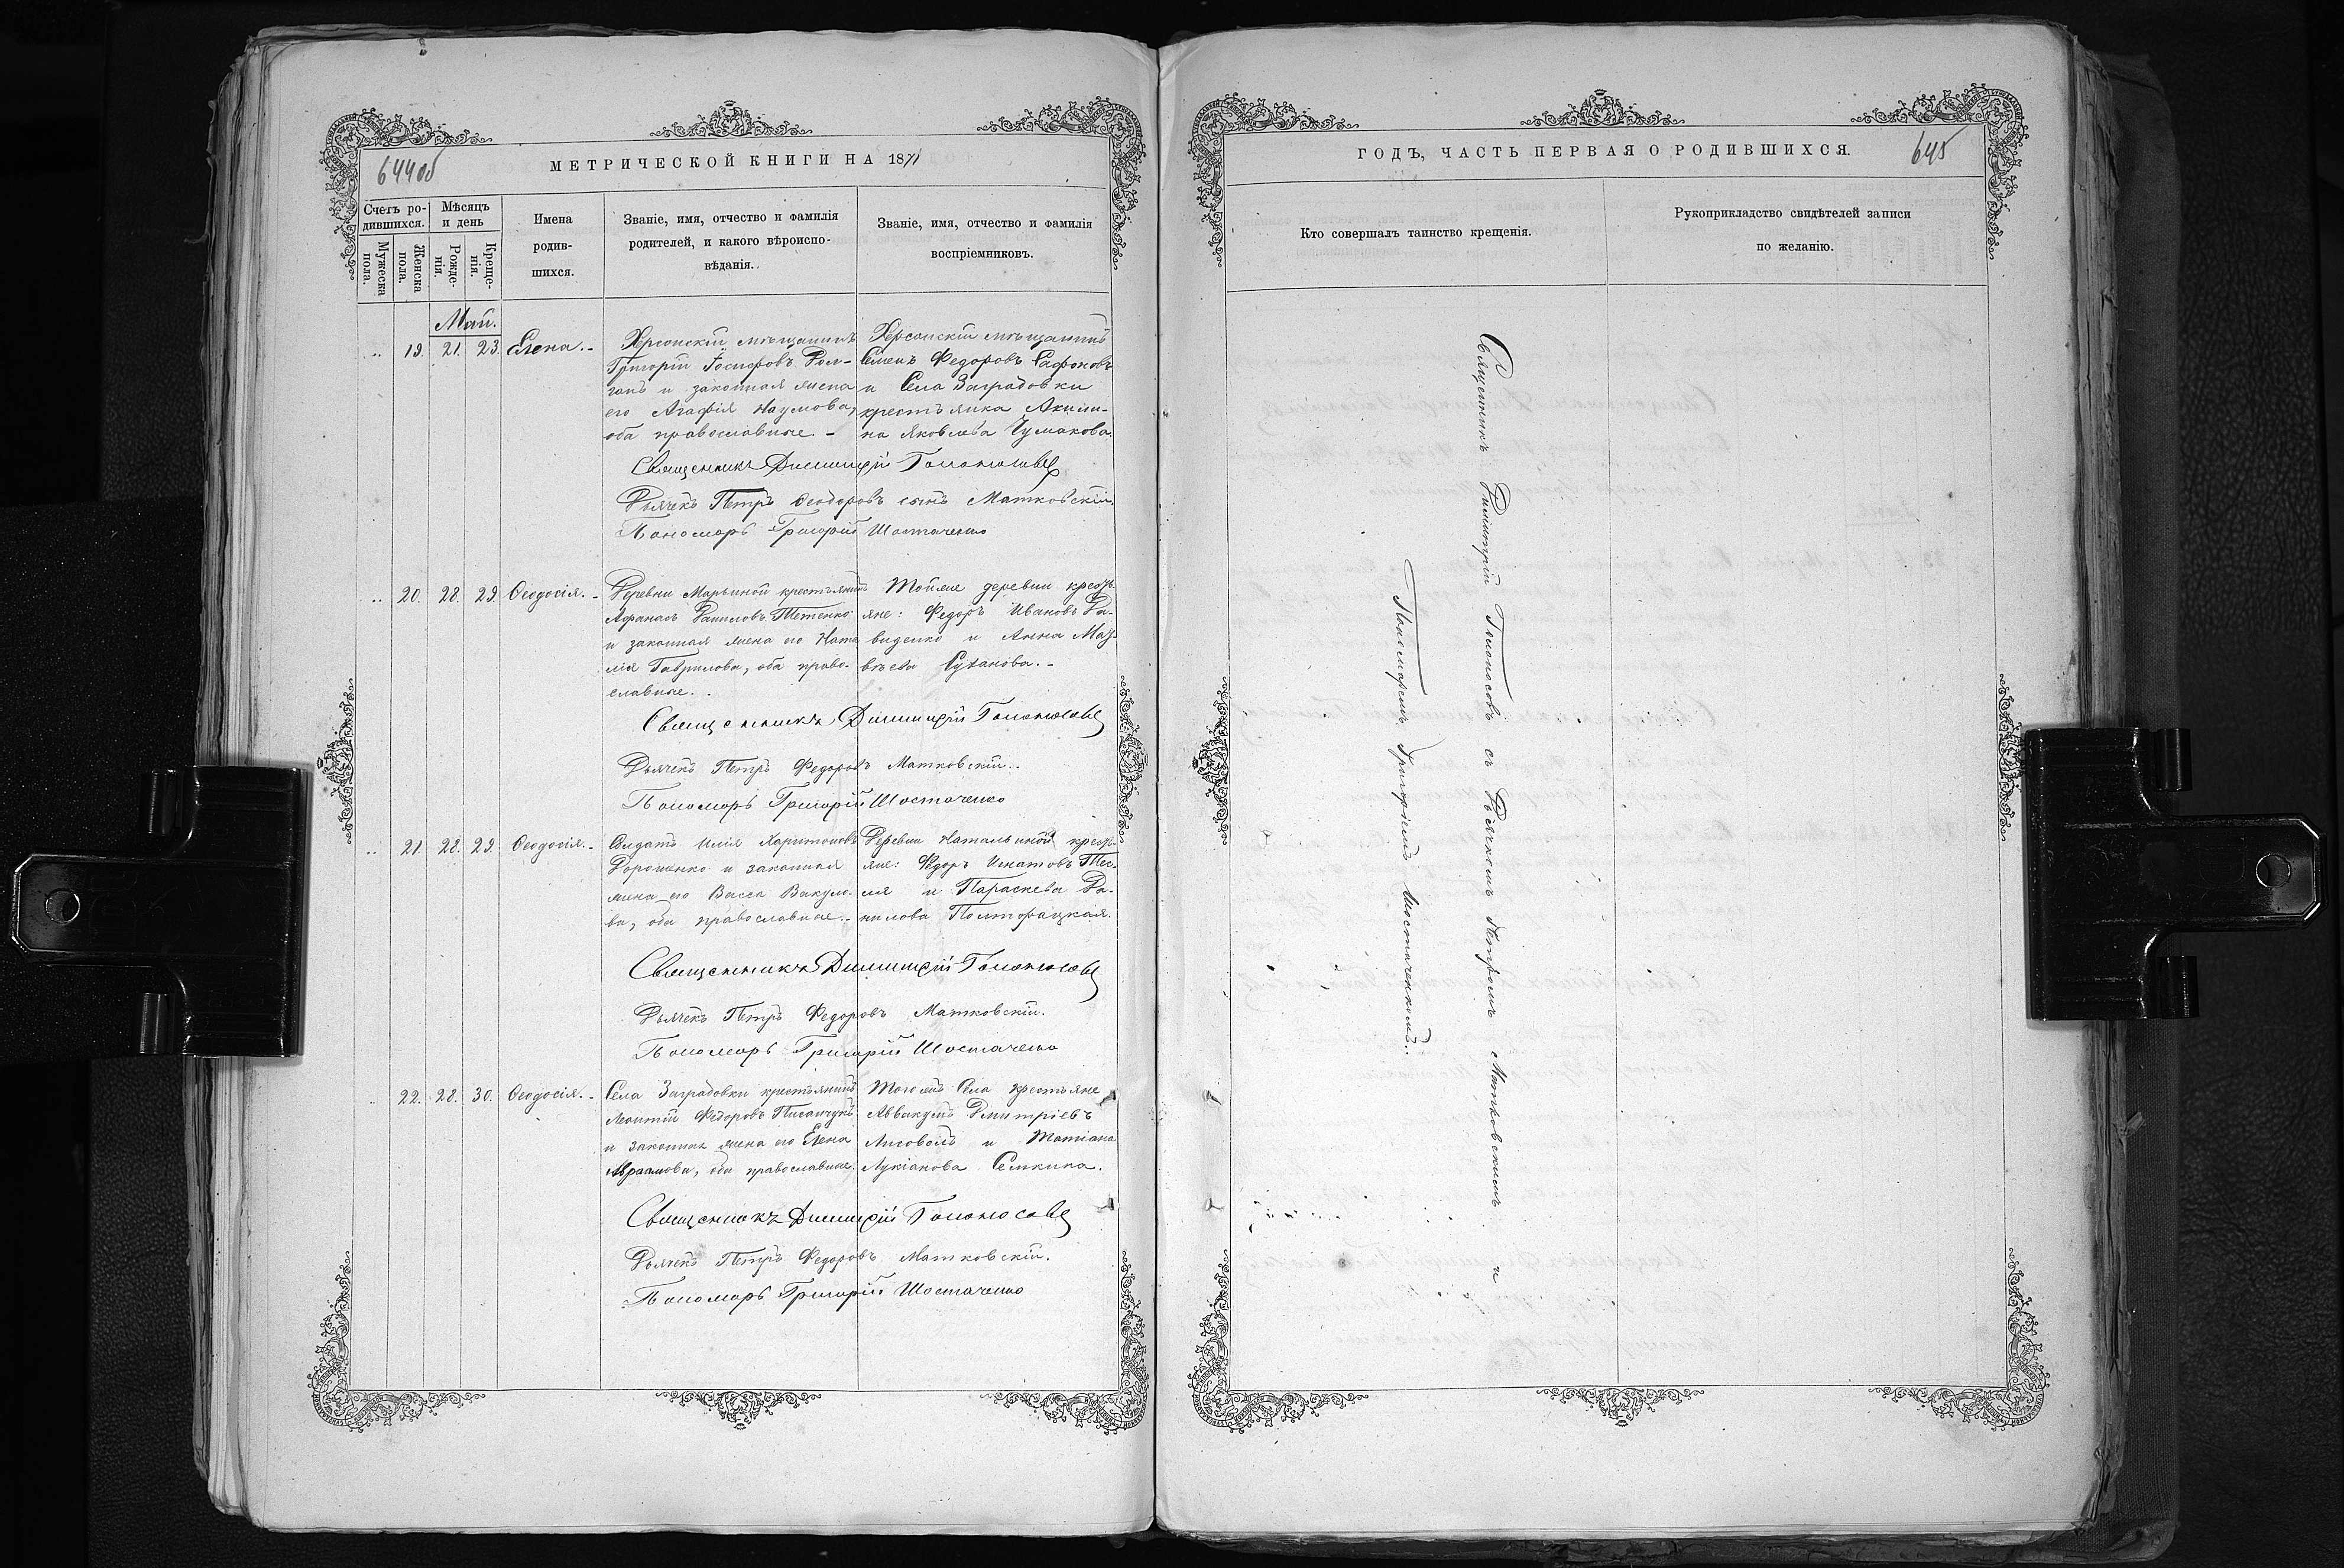 644об
МЕТРИЧЕСКОЙ КНИГИ НА 1871
Счетъ родившихся.
Мѣсяцъ и день
Имена родившихся.
Званіе, имя, отчество и фамилія родителей, и какого вѣроисповѣданія.
Званіе, имя, отчество и фамилія воспріемниковъ.
Мужеска пола.
Женска пола.
Рожденія.
Крещенія.
Май.
19. 21. 23. Елена.
Херсонскій мѣщанинъ
Григорій Іосифовъ
и законная жена
его Агафія Наумова,
оба православные.
Херсонскій мѣщанинъ
Семенъ Федоровъ Сафоновъ
и Села Заградовки
крестьянка Акили-
на Яковлева Чумакова.
Священникъ Димитрій
Дьячекъ Петръ Феодоровъ сынъ Матковскій.
Пономарь Григорій Шостаченко
20. 28. 29. Ѳеодосія.
Деревни Марьиной крестьянинъ
Афанасъ Даниловъ Тетенко
и законная жена его Ната
лія Гаврилова, оба право-
славные.
Тойже деревни кресть
яне: Федоръ Ивановъ Да-
виденко и Анна Мат-
вѣева Суханова.
Священникъ Димитрій
Дьячекъ Петръ Федоровъ Матковскій.
Пономарь Григорій Шостаченко
21. 28. 29. Ѳеодосія.
Солдатъ Илія Харитоновъ
Дорошенко и законная
жена его Васса Вакуло-
ва, оба православные.
Деревни Натальиной кресть
яне: Федоръ Игнатовъ Тес-
ля и Параскева Да-
нилова Полторацкая.
Священникъ Димитрій
Дьячекъ Петръ Федоровъ Матковскій.
Пономарь Григорій Шостаченко
22. 28. 30. Ѳеодосія.
Села Заградовки крестьянинъ
Леонтій Федоровъ Писанчукъ
и законная жена его Елена
Авраамова, оба православные.
Тогожъ Села крестьяне
Аввакумъ Дмитріевъ
Лисоволъ и Татіана
Лукіанова Семкина.
Священникъ Димитрій
Дьячекъ Петръ Федоровъ Матковскій.
Пономарь Григорій Шостаченко
ГОДЪ, ЧАСТЬ ПЕРВАЯ О РОДИВШИХСЯ.
645
Кто совершалъ таинство крещенія.
Рукоприкладство свидѣтелей записи
по желанію.
Священникъ Димитрій съ Дьячкомъ Петромъ Матковскимъ и
Пономаремъ Григоріемъ Шостаченкомъ.